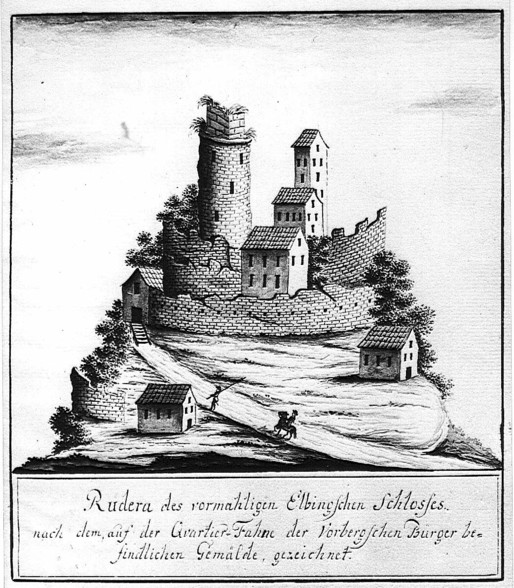 Rudera des vormahligen Elbingschen Schlosses.
nach dem, auf der Qvartier-Fahne der Vorbergschen Bürger be-
findlichen Gemälde, gezeichnet.